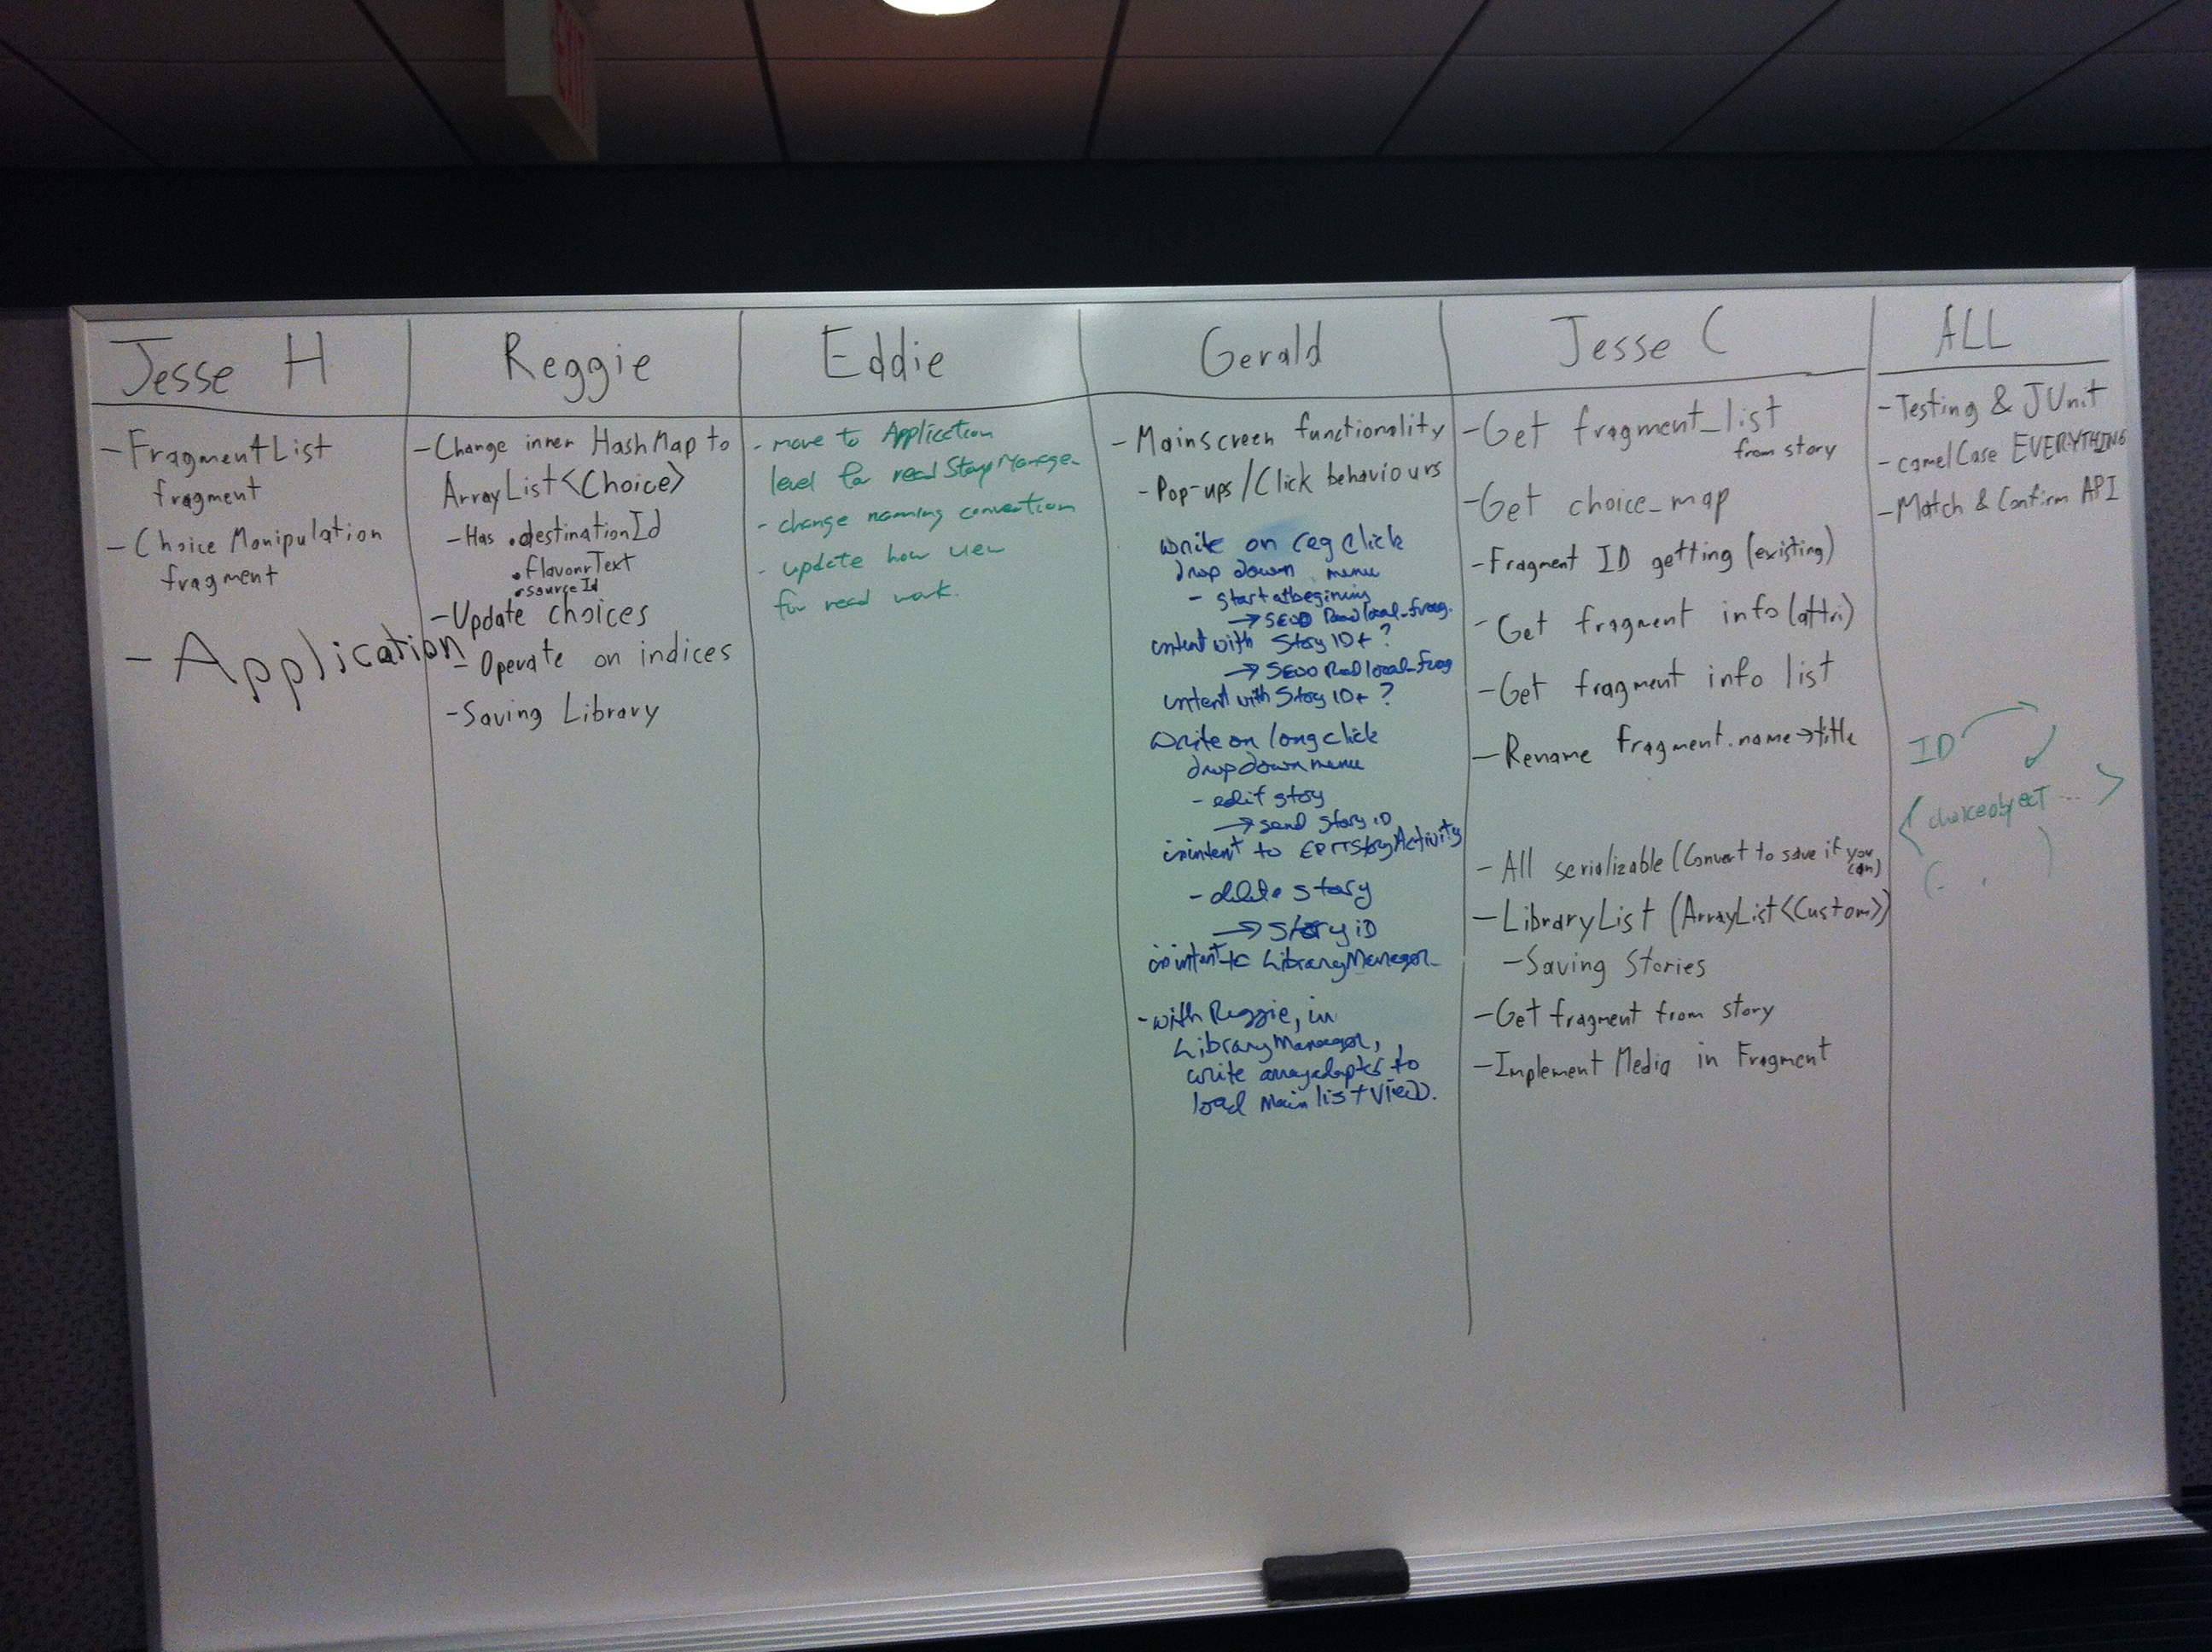 EXIT
Jesse H
- FragmentList
fragment
- Choice Manipulation
fragment
- Application
Reggie
- Change inner HashMap to
ArrayList<Choice>
- Has • destinationId
• flavourText
• sourceId
- Update choices
- Operate on indices
- Saving Library
Eddie
- move to Application
level for read StoryManage
- change naming convention
- update how view
for read work.
Gerald
- Mainscreen functionality
- Pop-ups/Click behaviours
write on reg click
drop down menu
- start at begining
→ SEND Read local_frag.
intent with Story ID + ?
→ SEND Read local_frag
intent with Story ID + ?
write on longclick
drop down menu
- edit story
→ send story ID
in intent to EDITStoryActivity
- delete story
→ Story iD
in intent to LibraryManager
- with Reggie, in
LibraryManager,
write arrayadapter to
load main listview.
Jesse C
- Get fragment_list
from story
- Get choice_map
- Fragment ID getting (existing)
- Get fragment info (attri)
- Get fragment info list
- Rename fragment.name → title
- All serializable (Convert to save if you
can)
- LibraryList (ArrayList<Custom>)
- Saving Stories
- Get fragment from story
- Implement Media in Fragment
ALL
- Testing & JUnit
- camelCase EVERYTHING
- Match & Confirm API
ID
< choiceobject ... >
( . , )